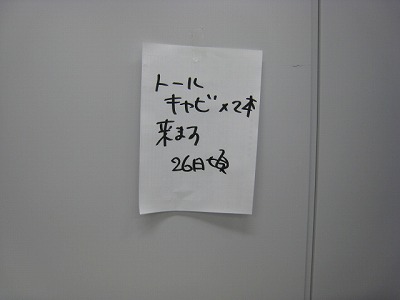 トール
キャビ×2本
来ます
26日頃